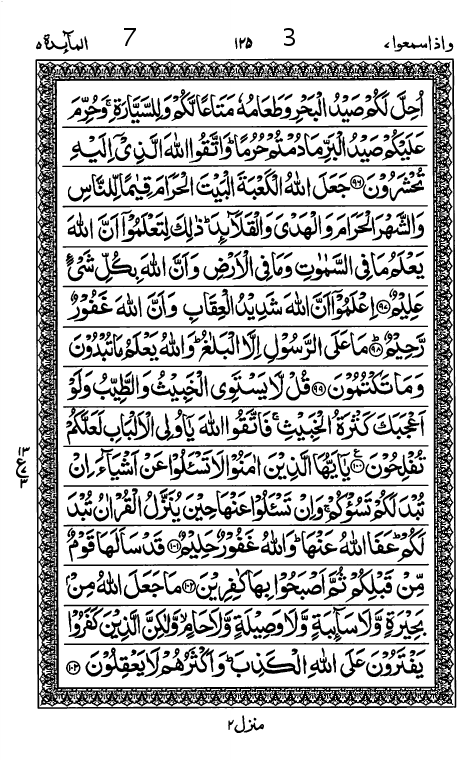 واذاسمعوا، 3 ١٢٥ 7 المآئدة ٥
اُحِلَّ لَكُمْ صَيْدُ الْبَحْرِ وَطَعَامُهٗ مَتَاعًا لَّكُمْ وَلِلسَّيَّارَةِ ۚ وَحُرِّمَ
عَلَيْكُمْ صَيْدُ الْبَرِّ مَا دُمْتُمْ حُرُمًا ؕ وَاتَّقُوا اللّٰهَ الَّذِیْۤ اِلَیْهِ
تُحْشَرُوْنَ ﴿۹۶﴾ جَعَلَ اللّٰهُ الْكَعْبَةَ الْبَیْتَ الْحَرَامَ قِیٰمًا لِّلنَّاسِ
وَالشَّهْرَ الْحَرَامَ وَالْهَدْیَ وَالْقَلَآئِدَ ؕ ذٰلِكَ لِتَعْلَمُوْۤا اَنَّ اللّٰهَ
یَعْلَمُ مَا فِی السَّمٰوٰتِ وَمَا فِی الْاَرْضِ وَاَنَّ اللّٰهَ بِكُلِّ شَیْءٍ
عَلِیْمٌ ﴿۹۷﴾ اِعْلَمُوْۤا اَنَّ اللّٰهَ شَدِیْدُ الْعِقَابِ وَاَنَّ اللّٰهَ غَفُوْرٌ
رَّحِیْمٌ ﴿۹۸﴾ مَا عَلَی الرَّسُوْلِ اِلَّا الْبَلٰغُ ؕ وَاللّٰهُ یَعْلَمُ مَا تُبْدُوْنَ
وَمَا تَكْتُمُوْنَ ﴿۹۹﴾ قُلْ لَّا یَسْتَوِی الْخَبِیْثُ وَالطَّیِّبُ وَلَوْ
اَعْجَبَكَ كَثْرَةُ الْخَبِیْثِ ۚ فَاتَّقُوا اللّٰهَ یٰۤاُولِی الْاَلْبَابِ لَعَلَّكُمْ
تُفْلِحُوْنَ ﴿۱۰۰﴾ یٰۤاَیُّهَا الَّذِیْنَ اٰمَنُوْا لَا تَسْـَٔلُوْا عَنْ اَشْیَآءَ اِنْ
تُبْدَ لَكُمْ تَسُؤْكُمْ ۚ وَاِنْ تَسْـَٔلُوْا عَنْهَا حِیْنَ یُنَزَّلُ الْقُرْاٰنُ تُبْدَ
لَكُمْ ؕ عَفَا اللّٰهُ عَنْهَا ؕ وَاللّٰهُ غَفُوْرٌ حَلِیْمٌ ﴿۱۰۱﴾ قَدْ سَاَلَهَا قَوْمٌ
مِّنْ قَبْلِكُمْ ثُمَّ اَصْبَحُوْا بِهَا كٰفِرِیْنَ ﴿۱۰۲﴾ مَا جَعَلَ اللّٰهُ مِنْۢ
بَحِیْرَةٍ وَّلَا سَآئِبَةٍ وَّلَا وَصِیْلَةٍ وَّلَا حَامٍ ۙ وَّلٰكِنَّ الَّذِیْنَ كَفَرُوْا
یَفْتَرُوْنَ عَلَی اللّٰهِ الْكَذِبَ ؕ وَاَكْثَرُهُمْ لَا یَعْقِلُوْنَ ﴿۱۰۳﴾
١٣
ع
٣
منزل ٢